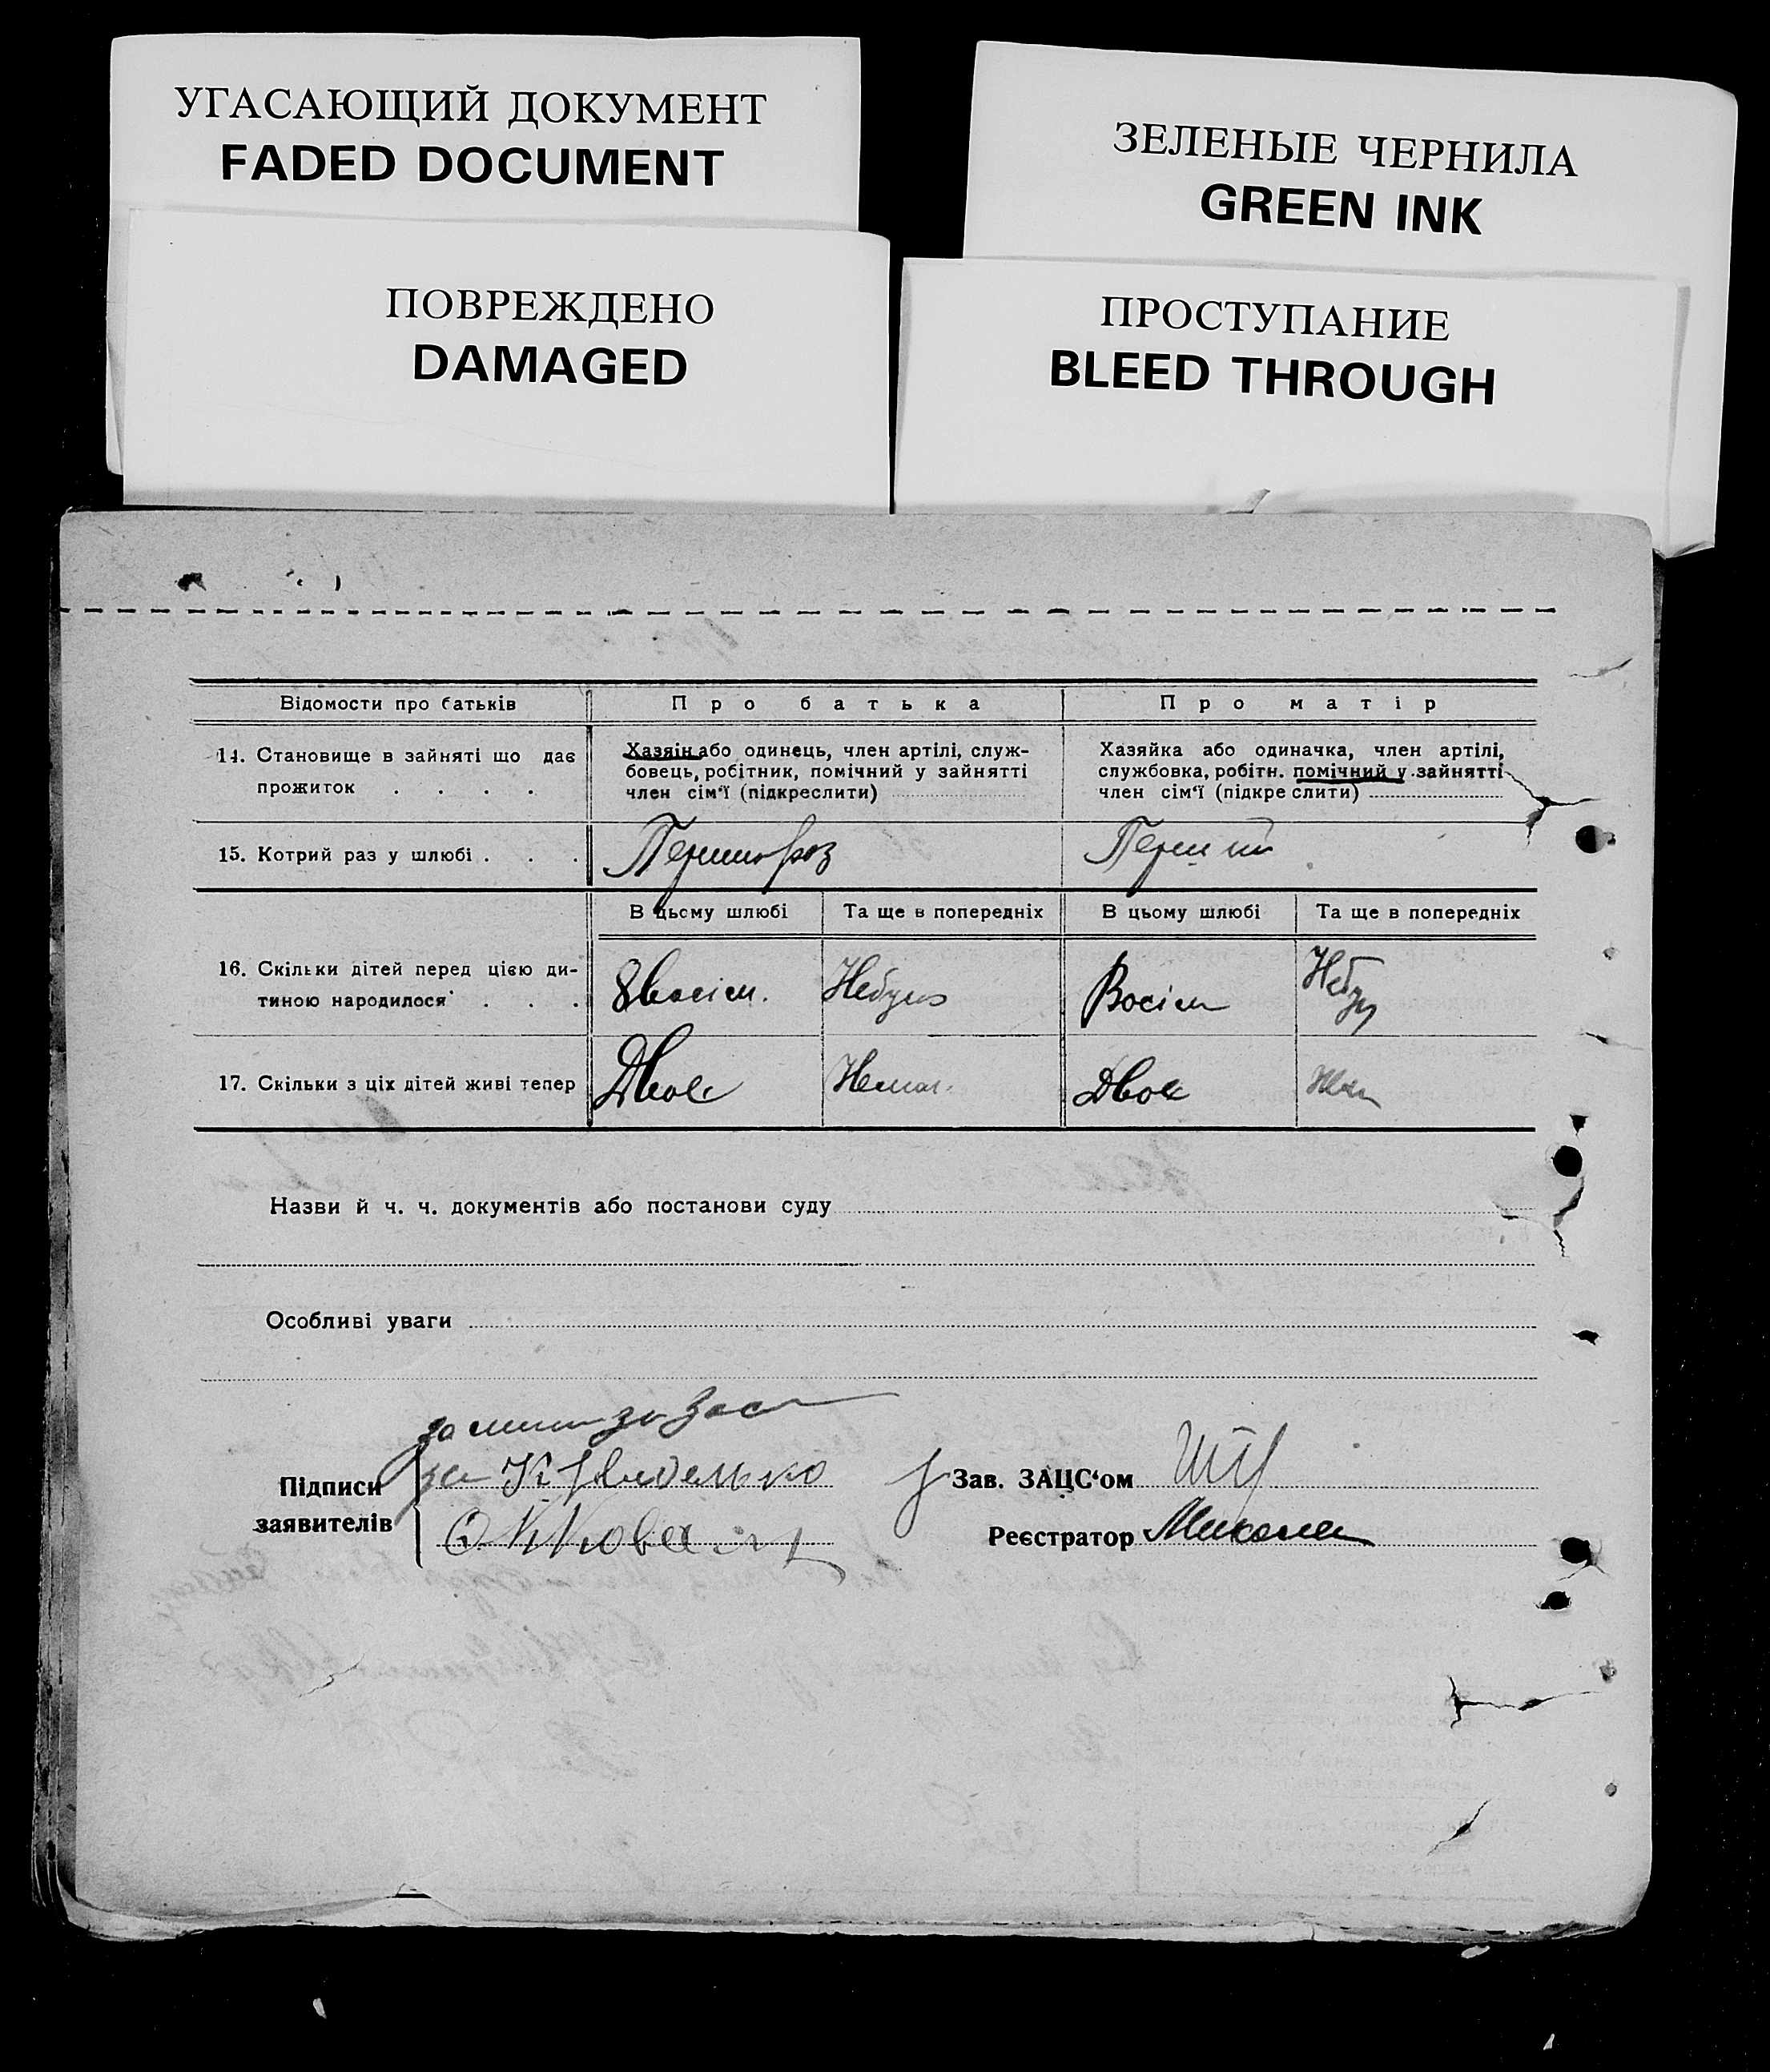 УГАСАЮЩИЙ ДОКУМЕНТ
FADED DOCUMENT
ЗЕЛЕНЫЕ ЧЕРНИЛА
GREEN INK
ПОВРЕЖДЕНО
DAMAGED
ПРОСТУПАНИЕ
BLEED THROUGH
Відомости про батьків
Про батька
Про матір
14. Становище в зайняті що дає
прожиток . . . .
Хазяін або одинець, член артілі, служ-
бовець, робітник, помічний у зайнятті
член сім'ї (підкреслити)
Хазяйка або одиначка, член артілі,
службовка, робітн. помічний у зайнятті
член сім'ї (підкреслити)
15. Котрий раз у шлюбі . . .
Перший раз
Перший
В цьому шлюбі
Та ще в попередніх
В цьому шлюбі
Та ще в попередніх
16. Скільки дітей перед цією ди-
тиною народилося . . .
8 восім.
Небуло
Восім
Небул
17. Скільки з ціх дітей живі тепер
Двоє
Немає
Двоє
Назви й ч. ч. документів або постанови суду
Особливі уваги
Підписи
заявителів
за
Зав. ЗАЦС'ом
Реєстратор